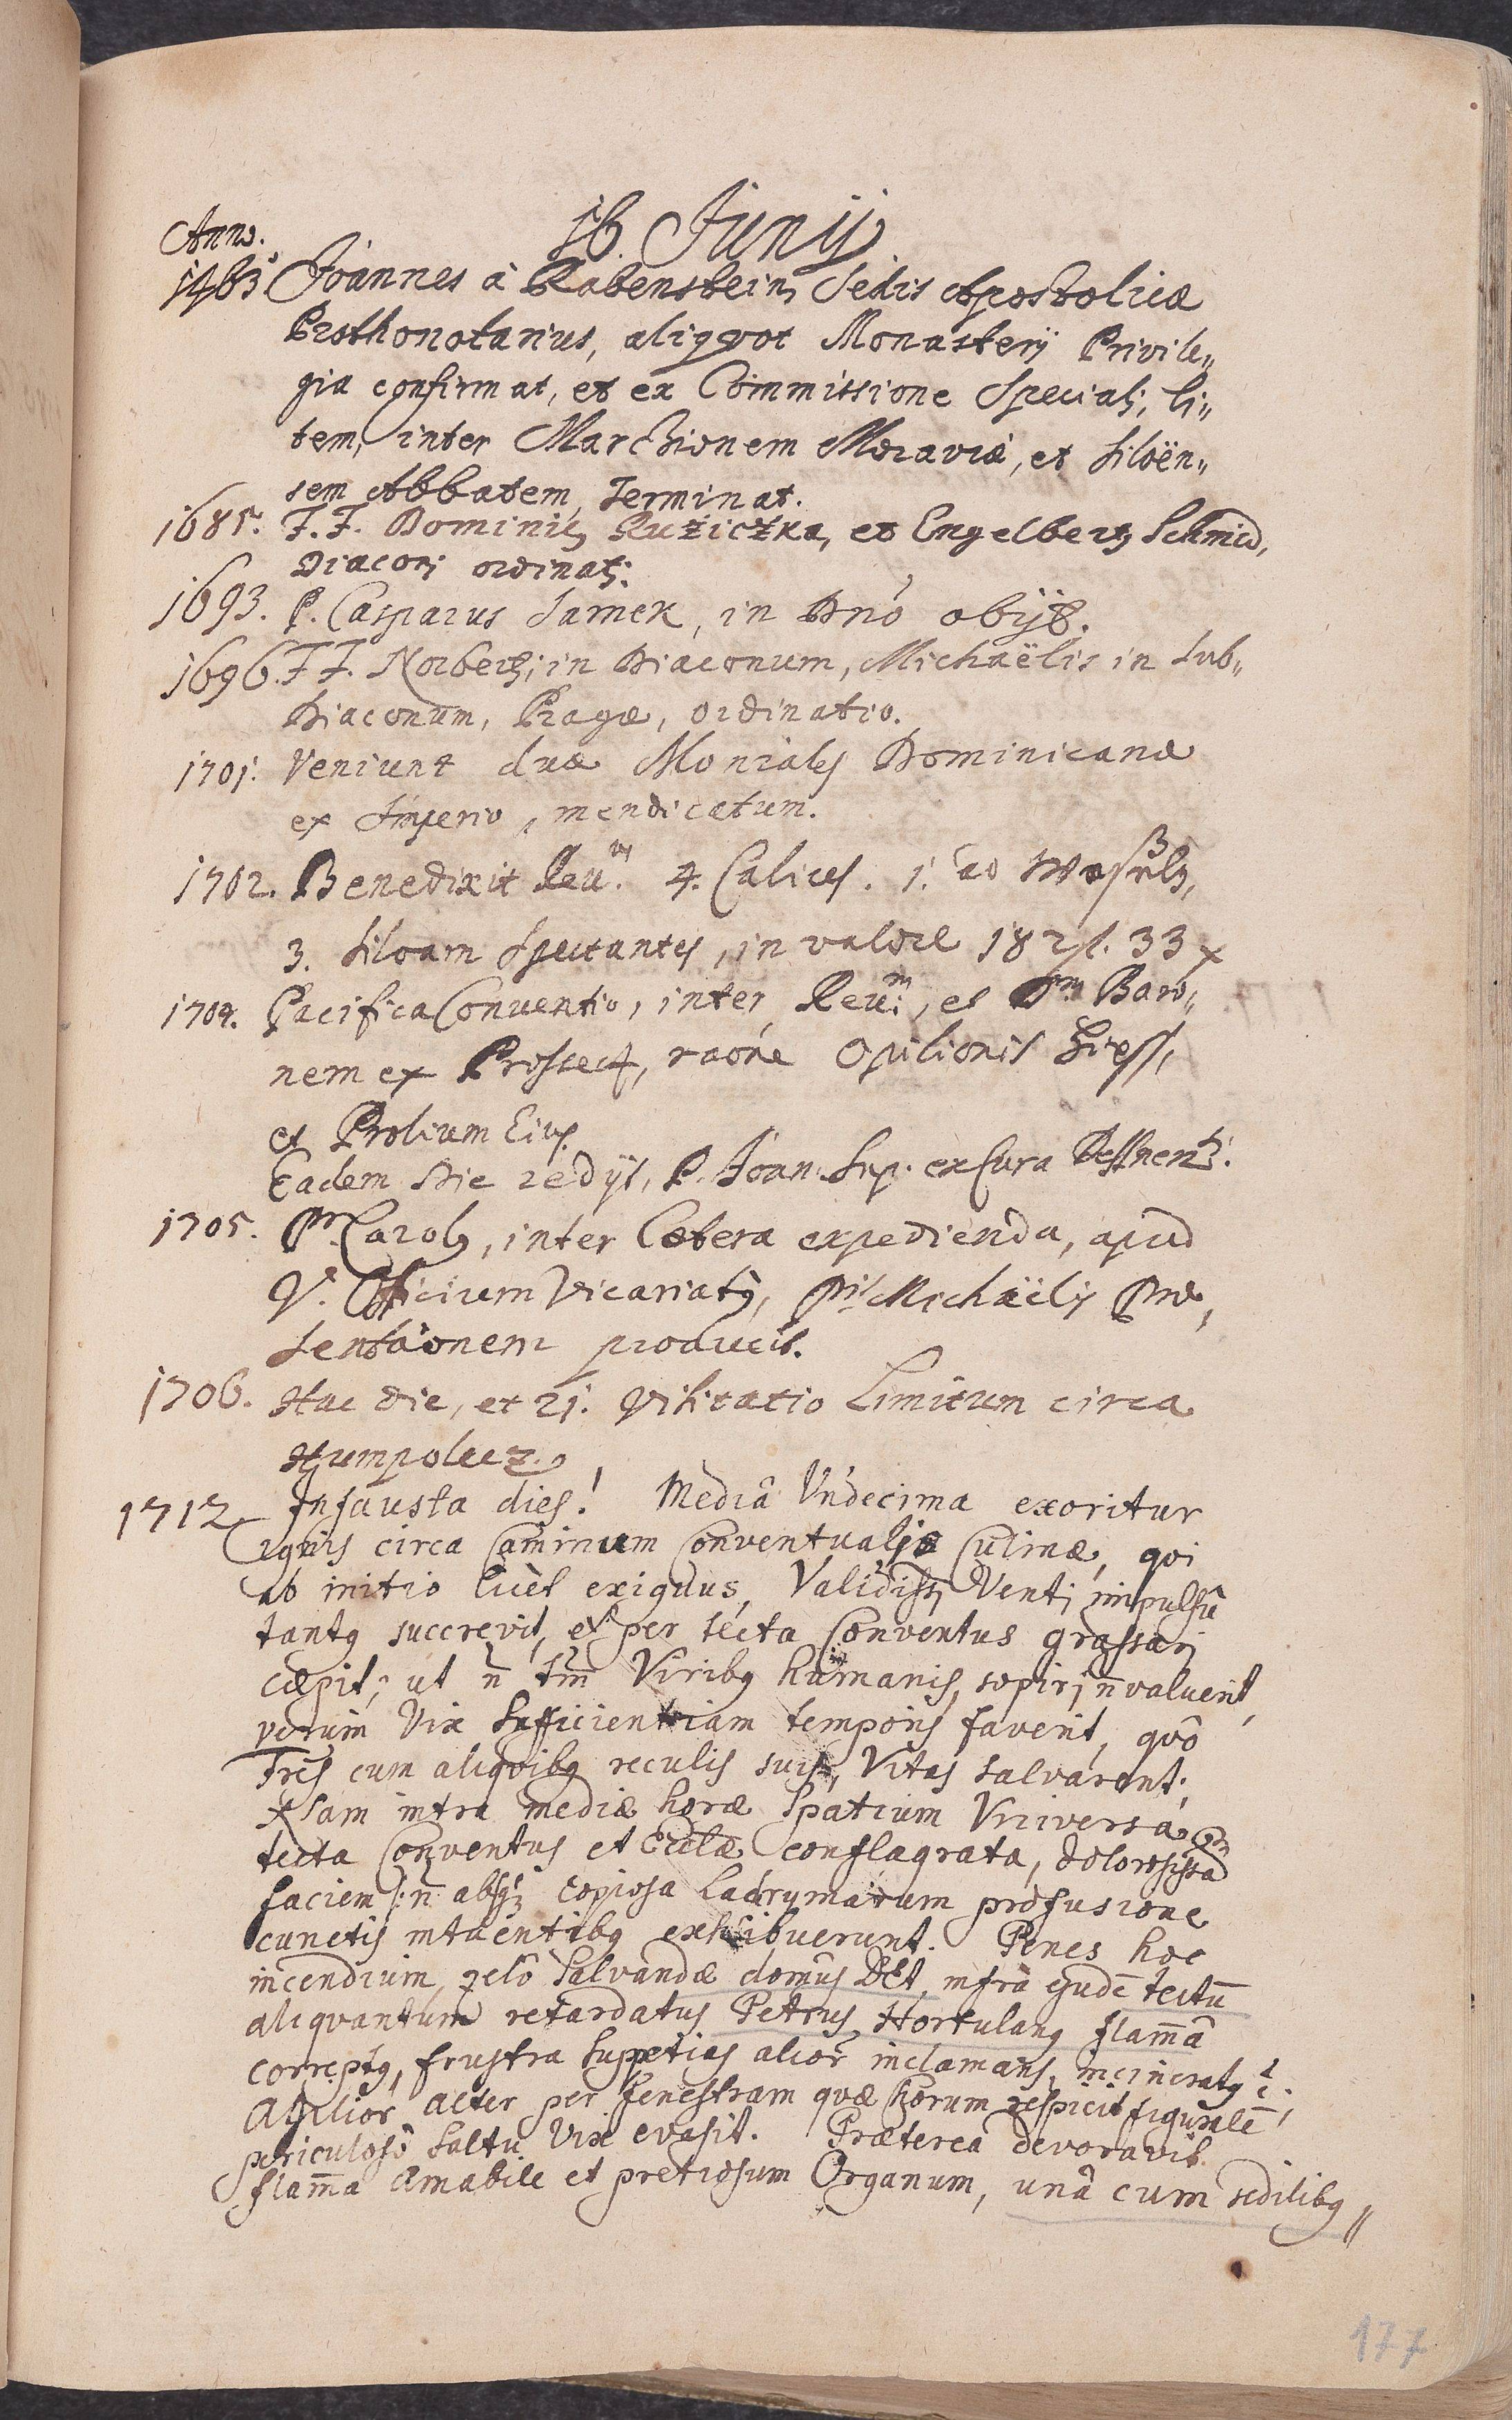 16. Junij
Anno.
1463 Joannes à Rabenstein, Sedis Apostolicæ
Prothonotarius, aliqvot Monasterij Privile„
gia confirmat, et ex Commissione Speciali, li„
tem, inter Marchionem Moraviæ, et Siloën„
sem Abbatem, Terminat.
1685. F.F. Dominicq Ružiczka, et Engelbertq Schmid,
Diaconi ordinati.
1693. P. Casparus Samek, in Dnó obijt.
1696. F.F. Norberti, in Diaconum, Michaëlis in Sub„
Diaconum, Pragæ, ordinatio.
1701. Veniunt duæ Moniales Dominicanæ
ex Imperio, mendicatum.
1702. Benedixit Reu.m 4. Calices. 1. ad
3. Siloam Spectantes, in valore 182 fl. 33 x
1704. Pacifica Conventio, inter Reu:m, et Dm Baro„
nem ex, raóne Opilionis
et Prolium Eiuſ.
Eadem Die redijt, P. Joan. Sup. ex Cura
1705. Pr. Carolq, inter Cætera expedienda, apud
V. Officium Vicariatq, Pris Michaëlis Præ„
sentaonem producit.
1706. Hac die, et 21. Visitatio Limitum circa
Humpolecz.
1712. Infausta dies! Mediâ Vndecima exoritur
ignis circa Caminum Conventualis Culinæ, qvi
ab initio licèt exiguus, Validissi Venti impulsû
tantq succrevit, et per tecta Conventus grassari
cæpit; ut n̄ tm̄ Viribq humanis, sopiri n̄ valuerit,
verum Vix Sufficientiam temporis faverit, qvô
Fres cum aliqvibq reculis suis, Vitas salvarent.
Nam intra mediæ horæ Spatium Vniversa
tecta Conventus et Ecclæ conflagrata, dolorosissam
faciem |: n̄ absq; copiosa Lachrymarum profusione
cunctis intuentibq exhibuerunt. Penes hoc
incendium, zelô Salvandæ domûs DEI, infrà ejudē tectū
aliqvantum retardatus Petrus Hortulanq flam̄â
correptq, frustra Suppetias alior̄ inclamans, incineratq ē;
Agilior alter per fenestram qvæ Chorum respicit figuralē
periculosô Saltu Vix evasit. Præterea devoravit
flam̄a Amabile et pretiosum Organum, unâ cum sedilibq„
177